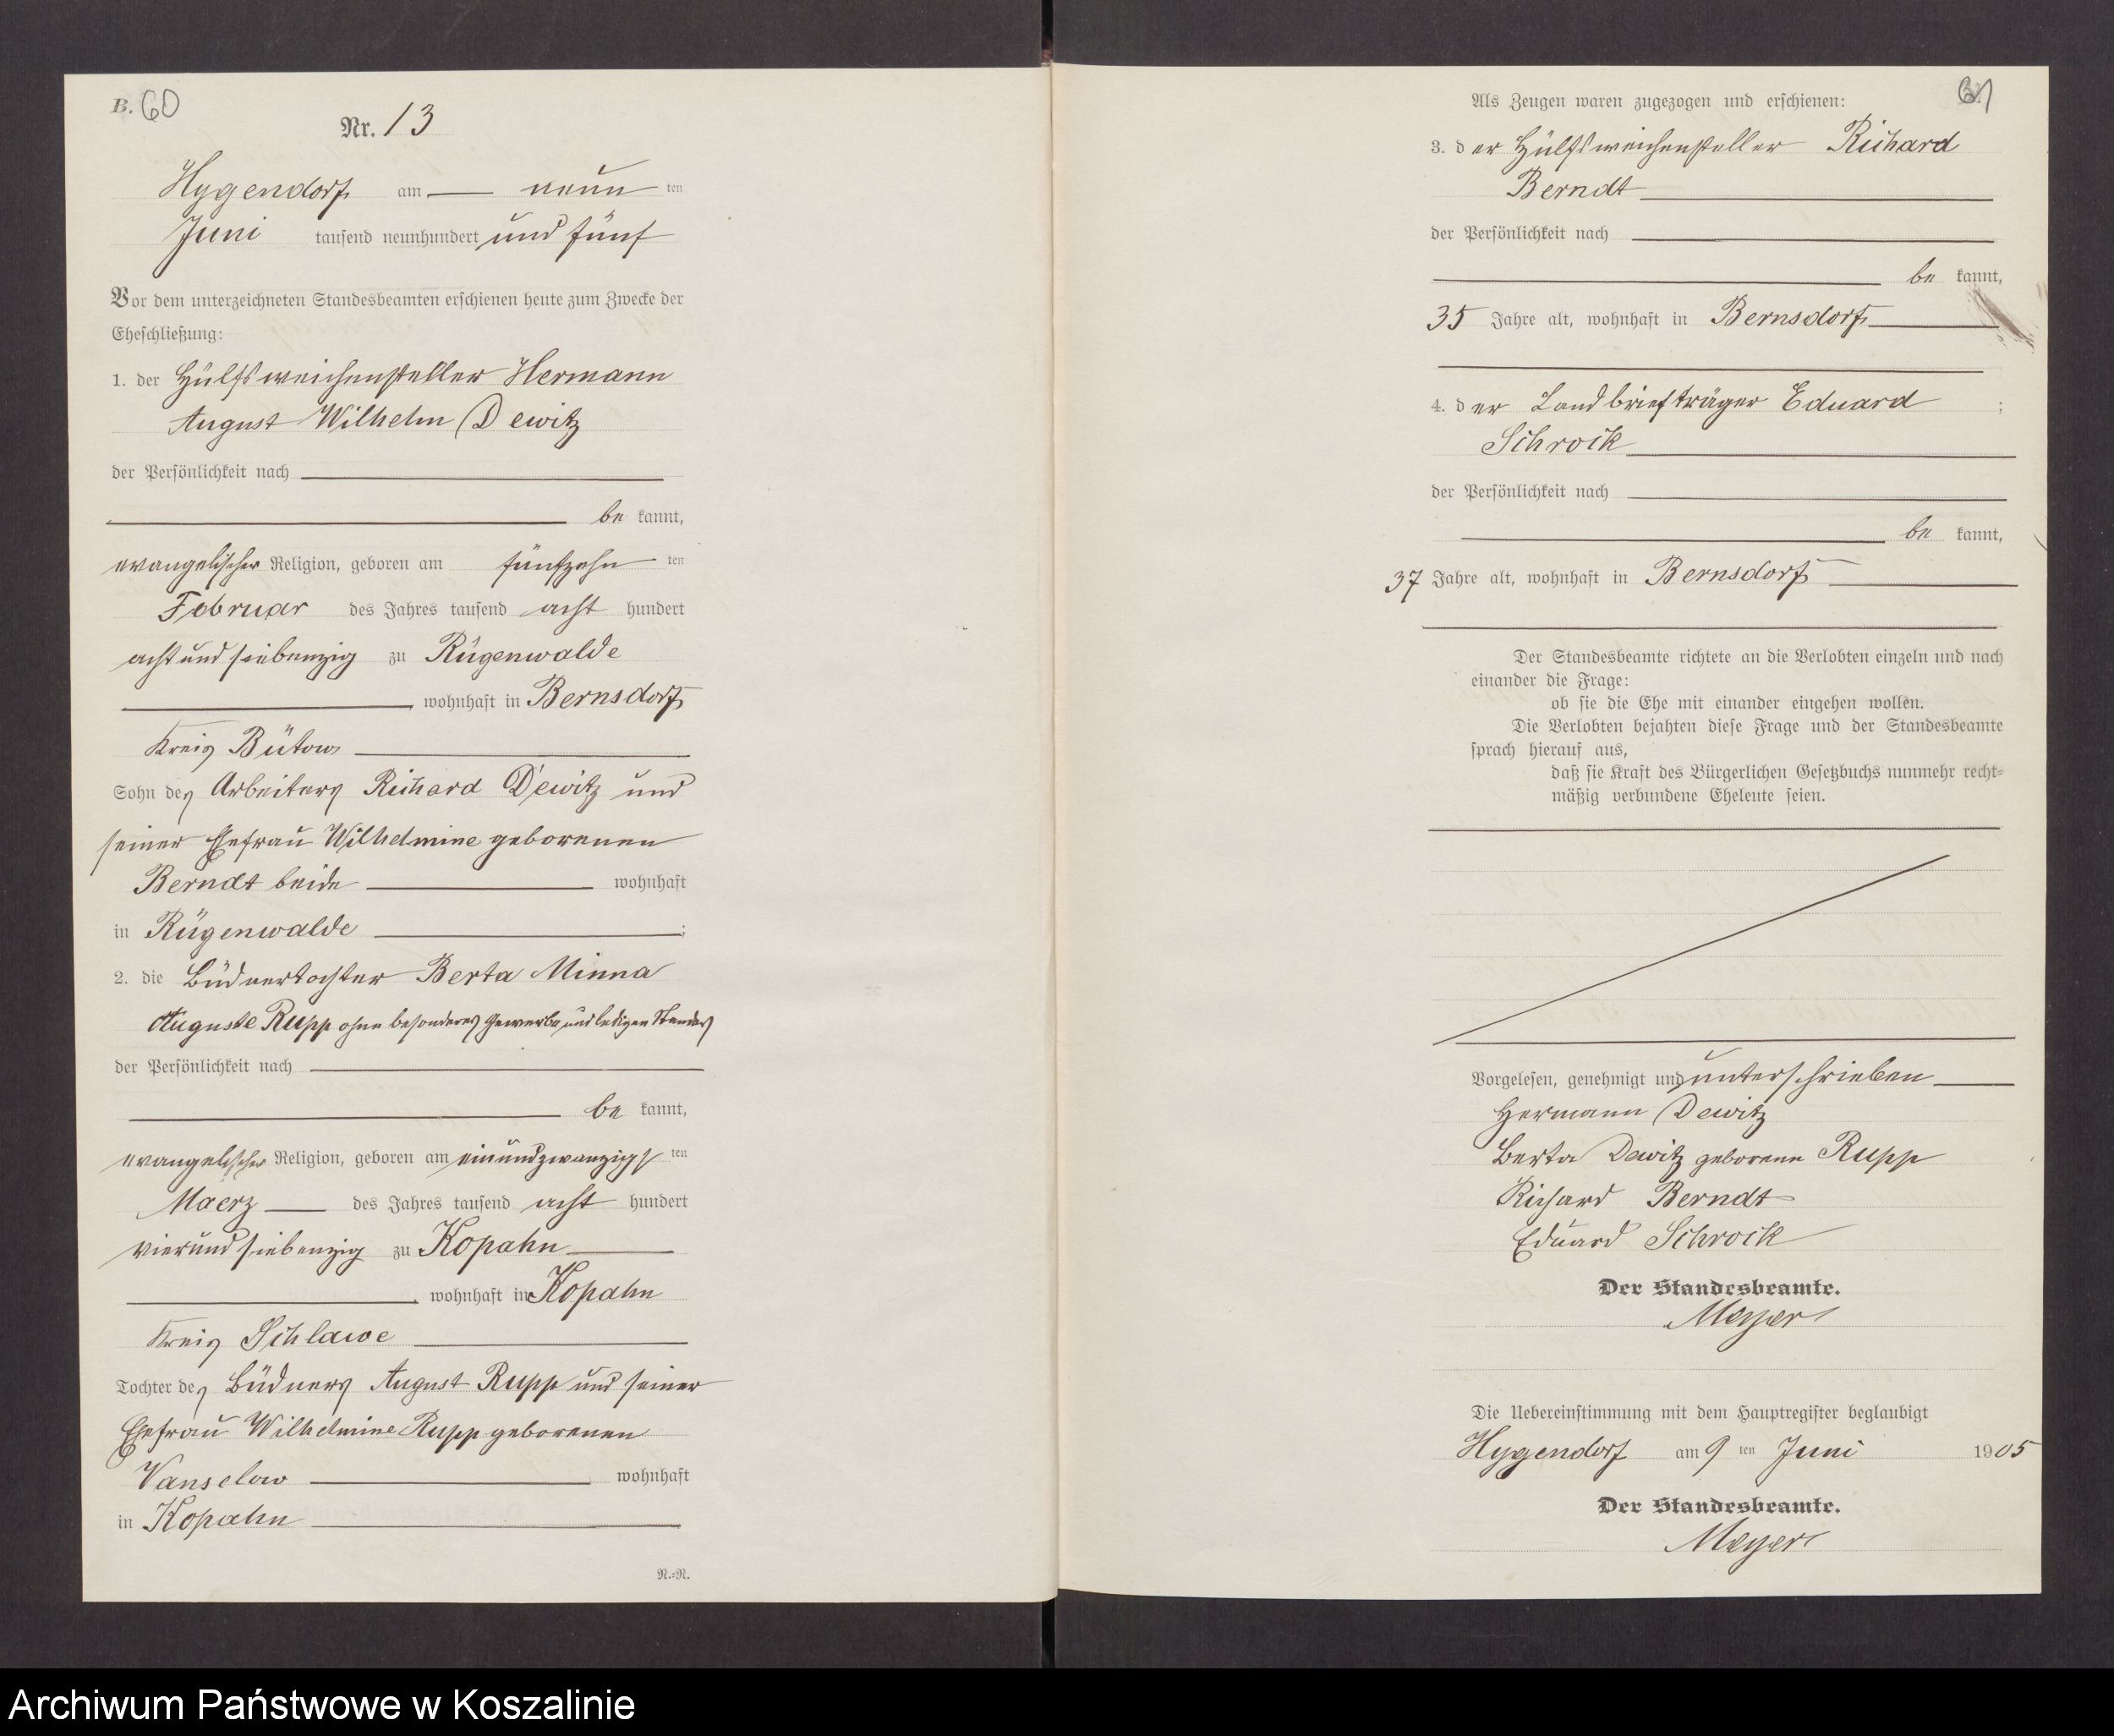 B. 60
Nr. 13
Hygendorf am neun ten
Juni tausend neunhundert und fünf
Vor dem unterzeichneten Standesbeamten erschienen heute zum Zwecke der
Eheschließung:
1. der Hülfsweichensteller Hermann
August Wilhelm Dewitz
der Persönlichkeit nach
be kannt,
evangelischer Religion, geboren am fünfzehn ten
Februar des Jahres tausend acht hundert
acht und siebenzig zu Rügenwalde
, wohnhaft in Bernsdorf
Kreis Bütow
Sohn des Arbeiters Richard Dewitz und
seiner Ehefrau Wilhelmine geborenen
Berndt beide wohnhaft
in Rügenwalde ;
2. die Büdnertochter Berta Minna
Auguste Rupp ohne besonderes Gewerbe und ledigen Standes
der Persönlichkeit nach
be kannt,
evangelischer Religion, geboren am einundzwanzigs ten
Maerz des Jahres tausend acht hundert
vierund siebenzig zu Kopahn
, wohnhaft in Kopahn
Kreis Schlawe
Tochter des Büdners August Rupp und seiner
Ehefrau Wilhelmine Rupp geborenen
Vanselow wohnhaft
in Kopahn
N.=N.
61
Als Zeugen waren zugezogen und erschienen:
3. der Hülfsweichensteller Richard
Berndt
der Persönlichkeit nach
be kannt,
35 Jahre alt, wohnhaft in Bernsdorf
4. der Landbriefträger Eduard ;
Schrock
der Persönlichkeit nach
be kannt,
37 Jahre alt, wohnhaft in Bernsdorf
Der Standesbeamte richtete an die Verlobten einzeln und nach
einander die Frage:
ob sie die Ehe mit einander eingehen wollen.
Die Verlobten bejahten diese Frage und der Standesbeamte
sprach hierauf aus,
daß sie Kraft des Bürgerlichen Gesetzbuchs nunmehr recht=
mäßig verbundene Eheleute seien.
Vorgelesen, genehmigt und unterschrieben
Hermann Dewitz
Berta Dewitz geborene Rupp
Richard Berndt
Eduard Schrock
Der Standesbeamte.
Meyer
Die Uebereinstimmung mit dem Hauptregister beglaubigt
Hygendorf am 9 ten Juni 1905
Der Standesbeamte.
Meyer
Archiwum Państwowe w Koszalinie